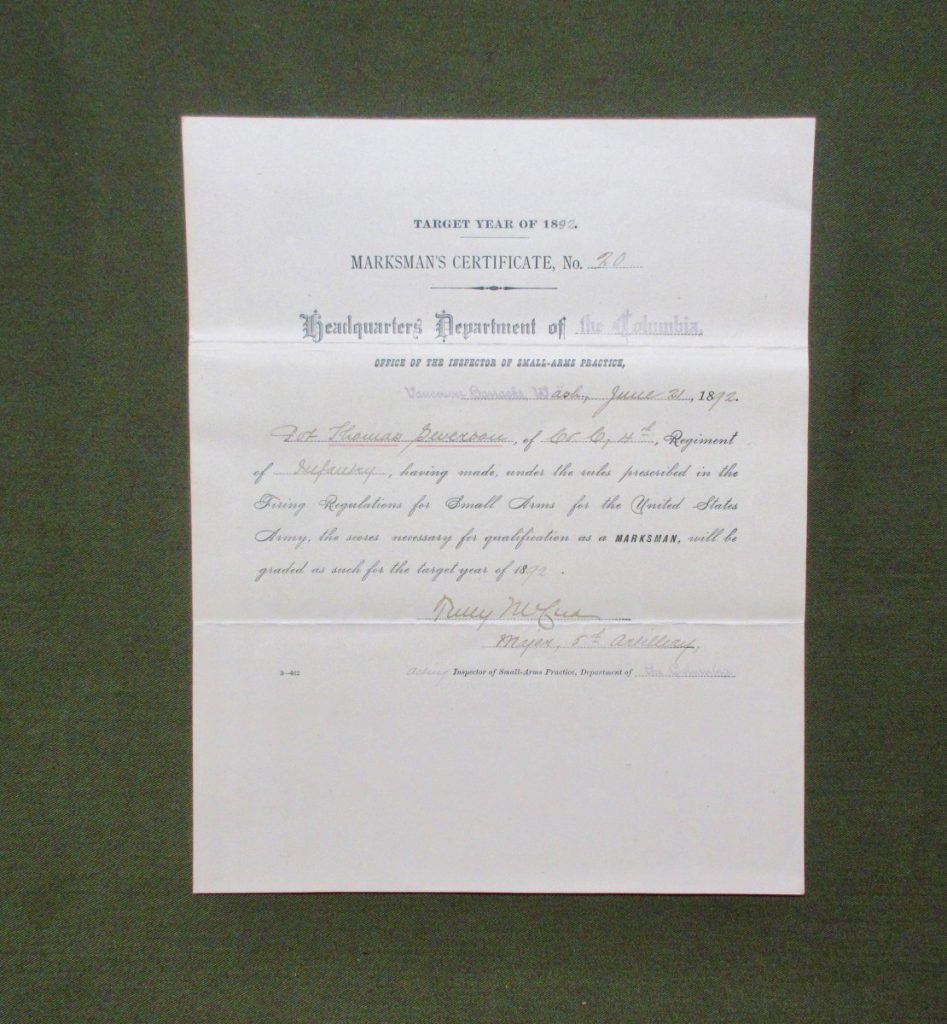 TARGET YEAR OF 1892.
MARKSMAN'S CERTIFICATE, No. 20
Headquarters Department of the Columbia,
OFFICE OF THE INSPECTOR OF SMALL-ARMS PRACTICE,
Vancouver Barracks, Wash., June 21, 1892.
Pvt Thomas, of Co. C, 4th, Regiment
of Infantry, having made, under the rules prescribed in the
Firing Regulations for Small Arms for the United States
Army, the scores necessary for qualification as a MARKSMAN, will be
graded as such for the target year of 1892.
5th Artillery,
Acting Inspector of Small-Arms Practice, Department of the Columbia